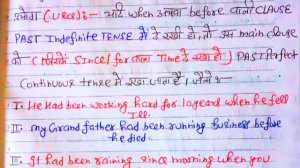 प्रयोग (uses):- यदि when अथवा before वाला CLAUSE
PAST Indefinite TENSE में दे रखी हो, तो उस main clause
को (जिसमें Since/for वाला Time दे रखा हो) PAST Perfect
Continuous tense में रखा जाता है, जैसे:-
I. He Had been working hard for 10 years when he fell
Ill.
II. my Grand father had been running business before
he died.
III. It had been raining since morning when you